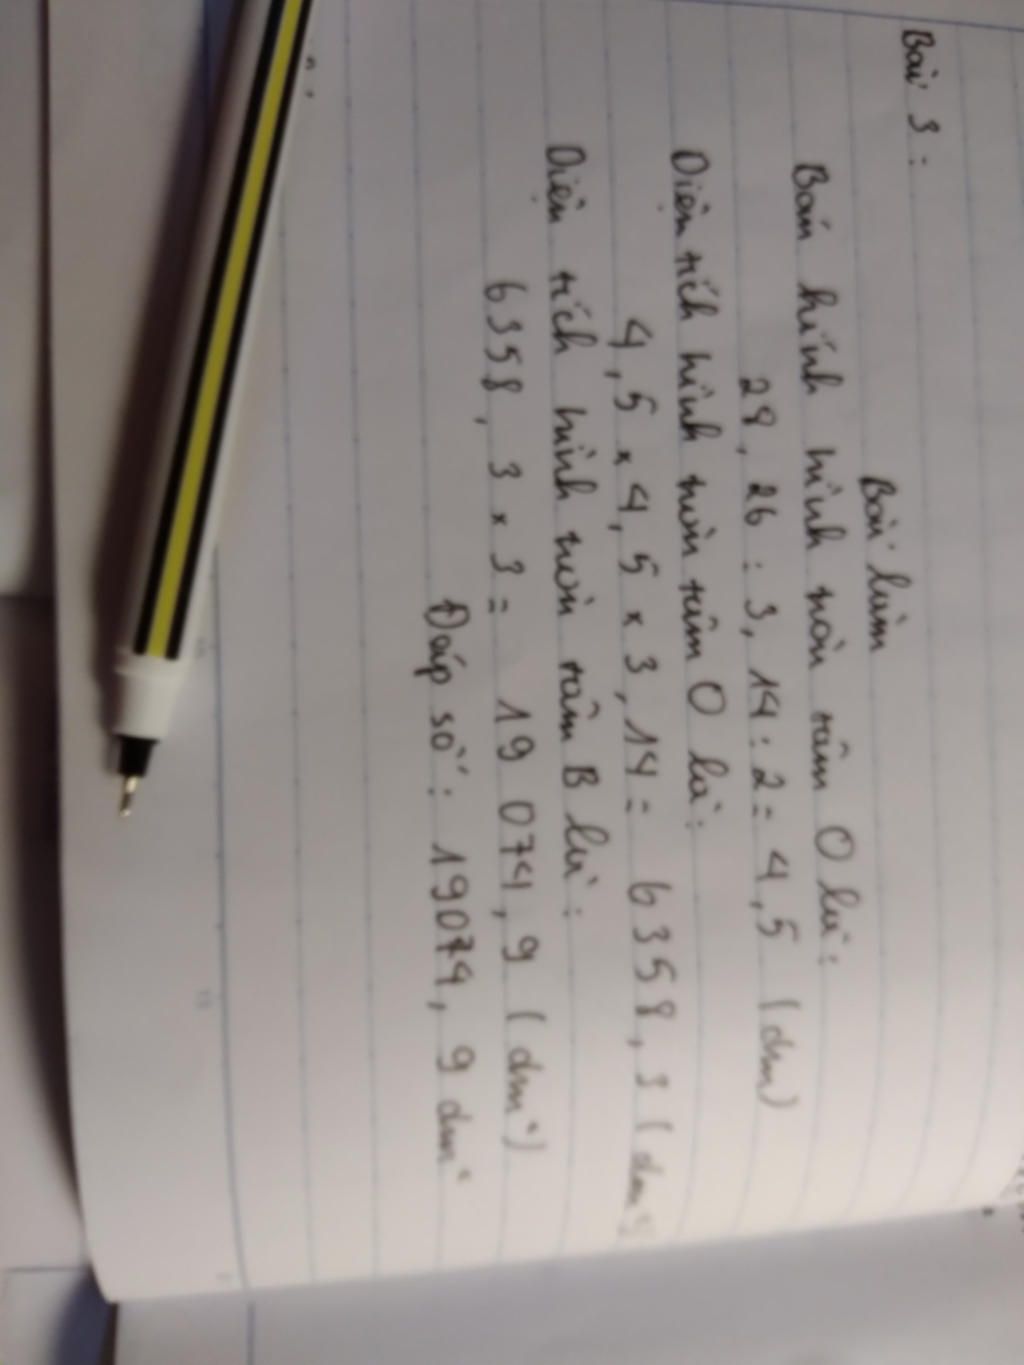 Bài 3 :
Bài làm
Bán kính hình tròn tâm O là :
28, 26 : 3, 14 : 2 = 4,5 (dm)
Diện tích hình tròn tâm O là :
4, 5 × 4, 5 × 3, 14 = 6358, 3 (dm²)
Diện tích hình tròn tâm B là :
6358, 3 × 3 = 19 074, 9 (dm²)
Đáp số : 19074, 9 dm²